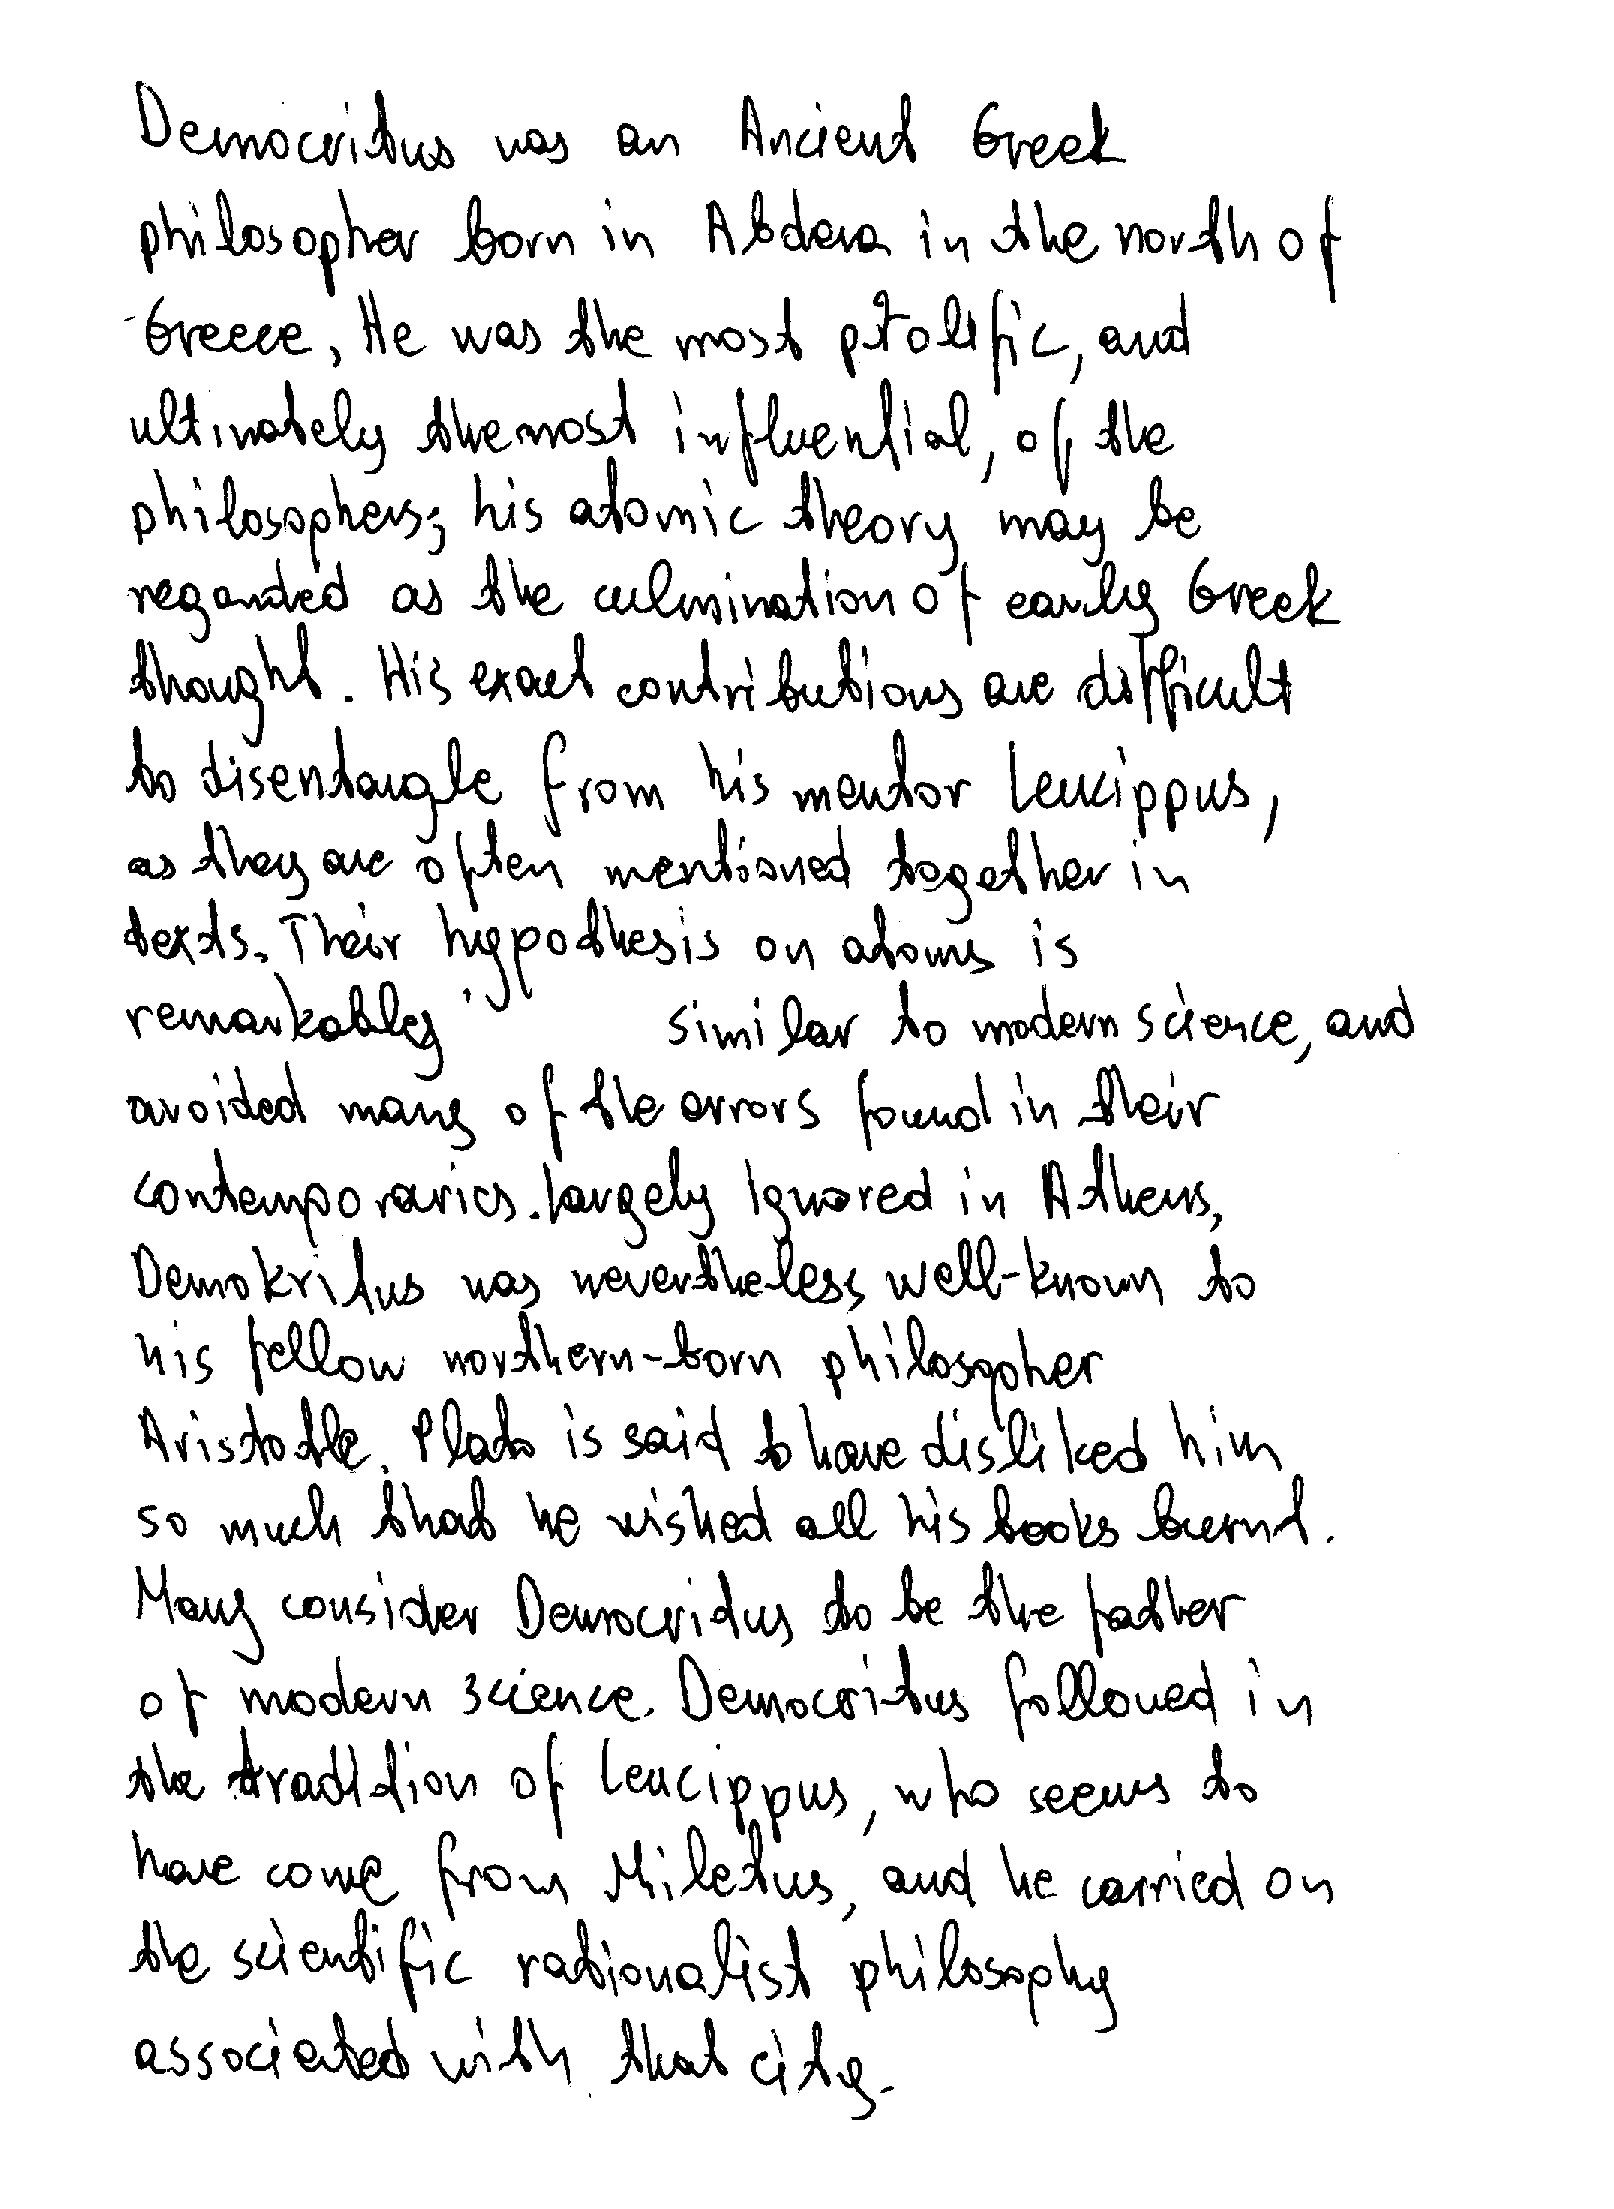 Democritus was an Ancient Greek
philosopher born in Abdera in the north of
Greece, He was the most prolific, and
ultimately the most influential, of the
philosophers; his atomic theory may be
regarded as the culmination of early Greek
thought. His exact contributions are difficult
to disentangle from his mentor Leucippus,
as they are often mentioned together in
texts. Their hypothesis on atoms is
remarkably similar to modern science, and
avoided many of the errors found in their
contemporaries. Largely Ignored in Athens,
Demokritus was nevertheless well-known to
his fellow northern-born philosopher
Aristotle. Plato is said to have disliked him
so much that he wished all his books burnt.
Many consider Democritus to be the father
of modern science. Democritus followed in
the tradition of Leucippus, who seems to
have come from Miletus, and he carried on
the scientific rationalist philosophy
associated with that city.